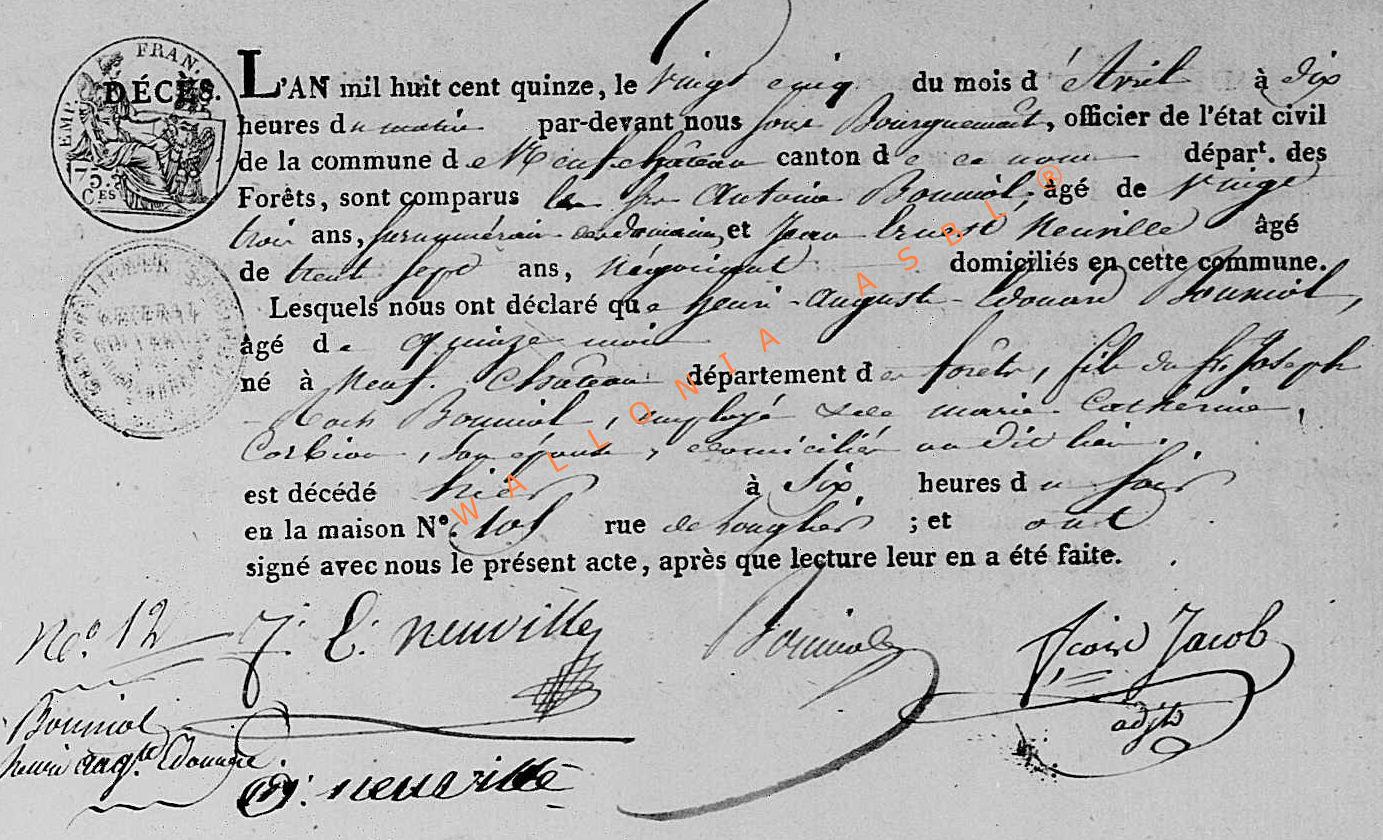 EMP. FRAN.
75 C.ES
DÉCÈS.
L'AN mil huit cent quinze, le vingt cinq du mois d'Avril à dix
heures du matin par-devant nous officier de l'état civil
de la commune de Neufchâteau canton de ce nom départ. des
Forêts, sont comparus Antoine Bouniol, âgé de vingt
trois ans, surnuméraire des domaines, et Jean Ernest Neuville âgé
de trent sept ans, négociant domiciliés en cette commune.
Lesquels nous ont déclaré que henri-auguste-Edouard Bouniol,
âgé de quinze mois
né à Neuf-Château département des forêts, fils du sr. Joseph
Roch Bouniol, employé & de marie Catherine
Corbiau, son épouse, domiciliés au dit lieu.
est décédé hier à six heures du soir
en la maison N°. 101 rue de longlier ; et ont
signé avec nous le présent acte, après que lecture leur en a été faite.
No. 12 J. E. neuville Bouniol Jacob
adjt
Bouniol
henri augte Edouard.
neuville
WALLONIA ASBL ®